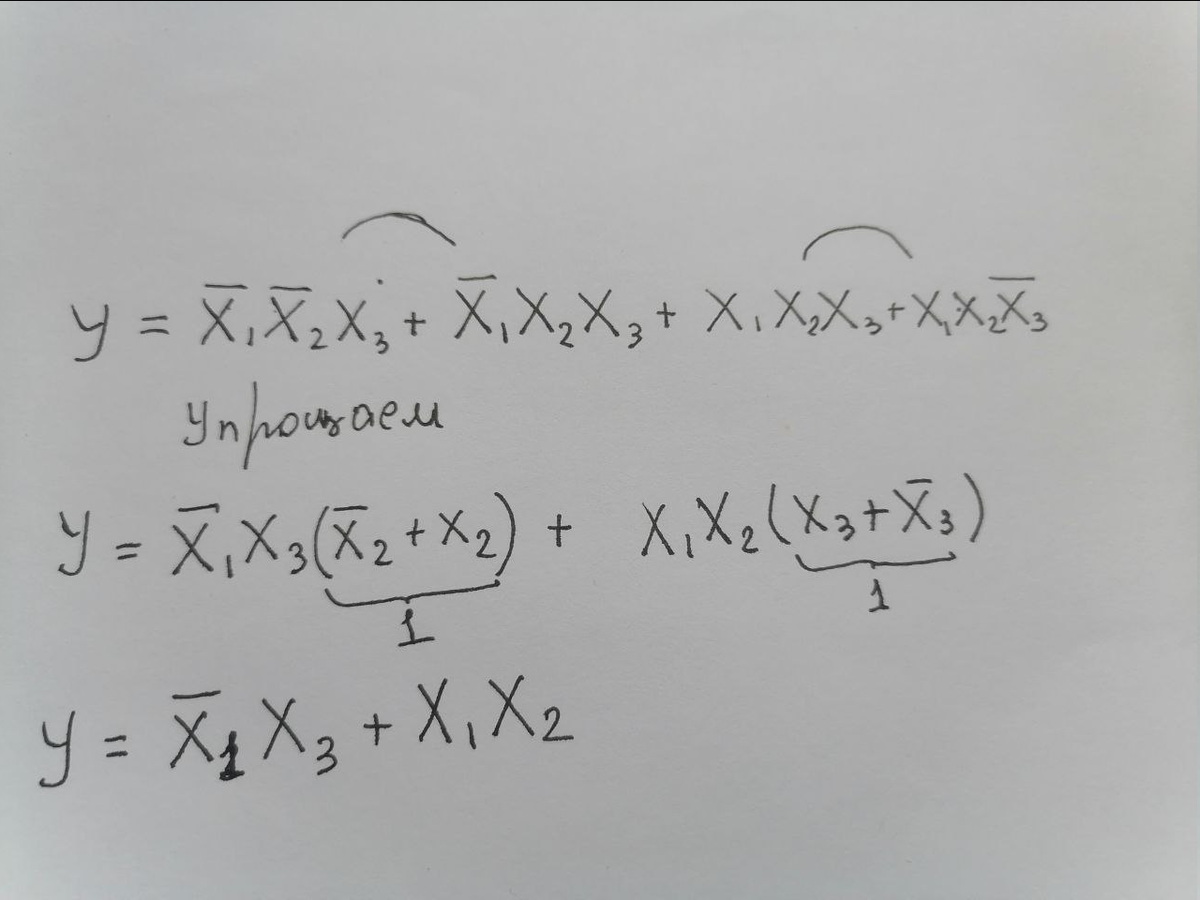 y = X̅₁X̅₂X₃ + X̅₁X₂X₃ + X₁X₂X₃ + X₁X₂X̅₃
Упрощаем
y = X̅₁X₃(X̅₂ + X₂) + X₁X₂(X₃ + X̅₃)
1 1
y = X̅₁X₃ + X₁X₂